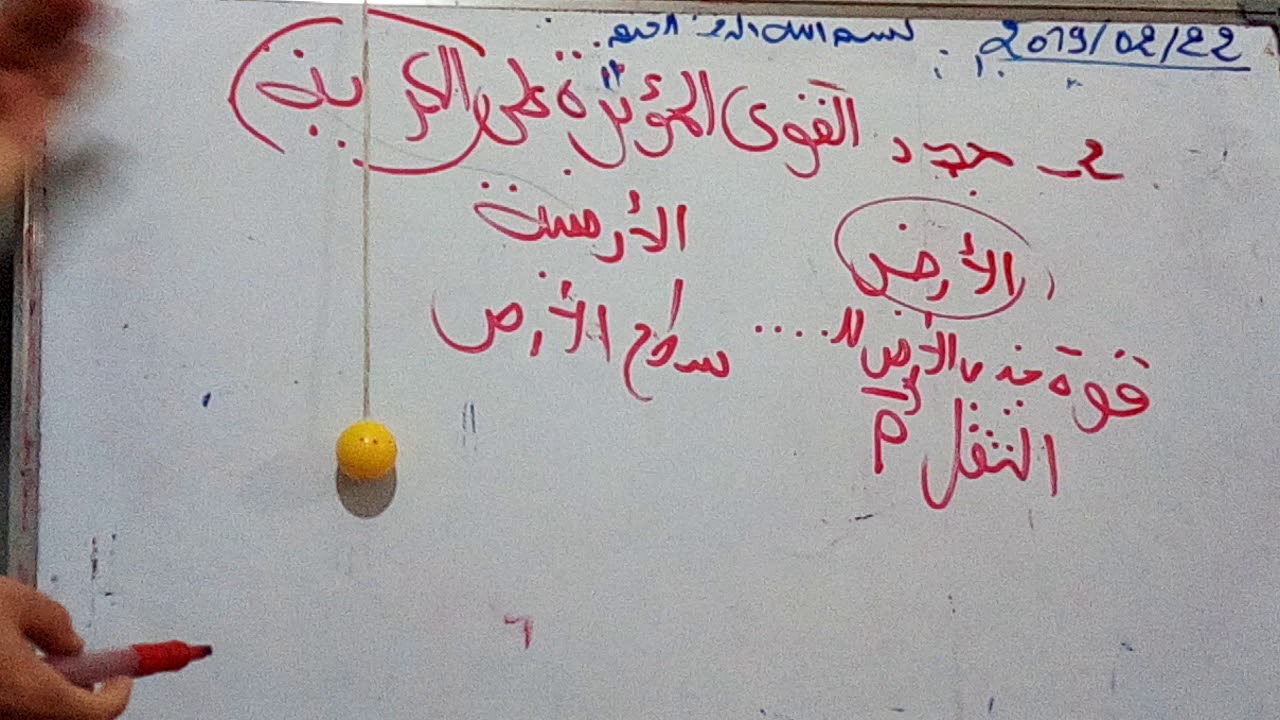 2019/02/22
بسم الله الرحمن الرحيم
2 - حدد القوى المؤثرة على الكرية
الأرض
الأرضية
سطح الأرض
قوة جذب الأرض لل....
الثقل